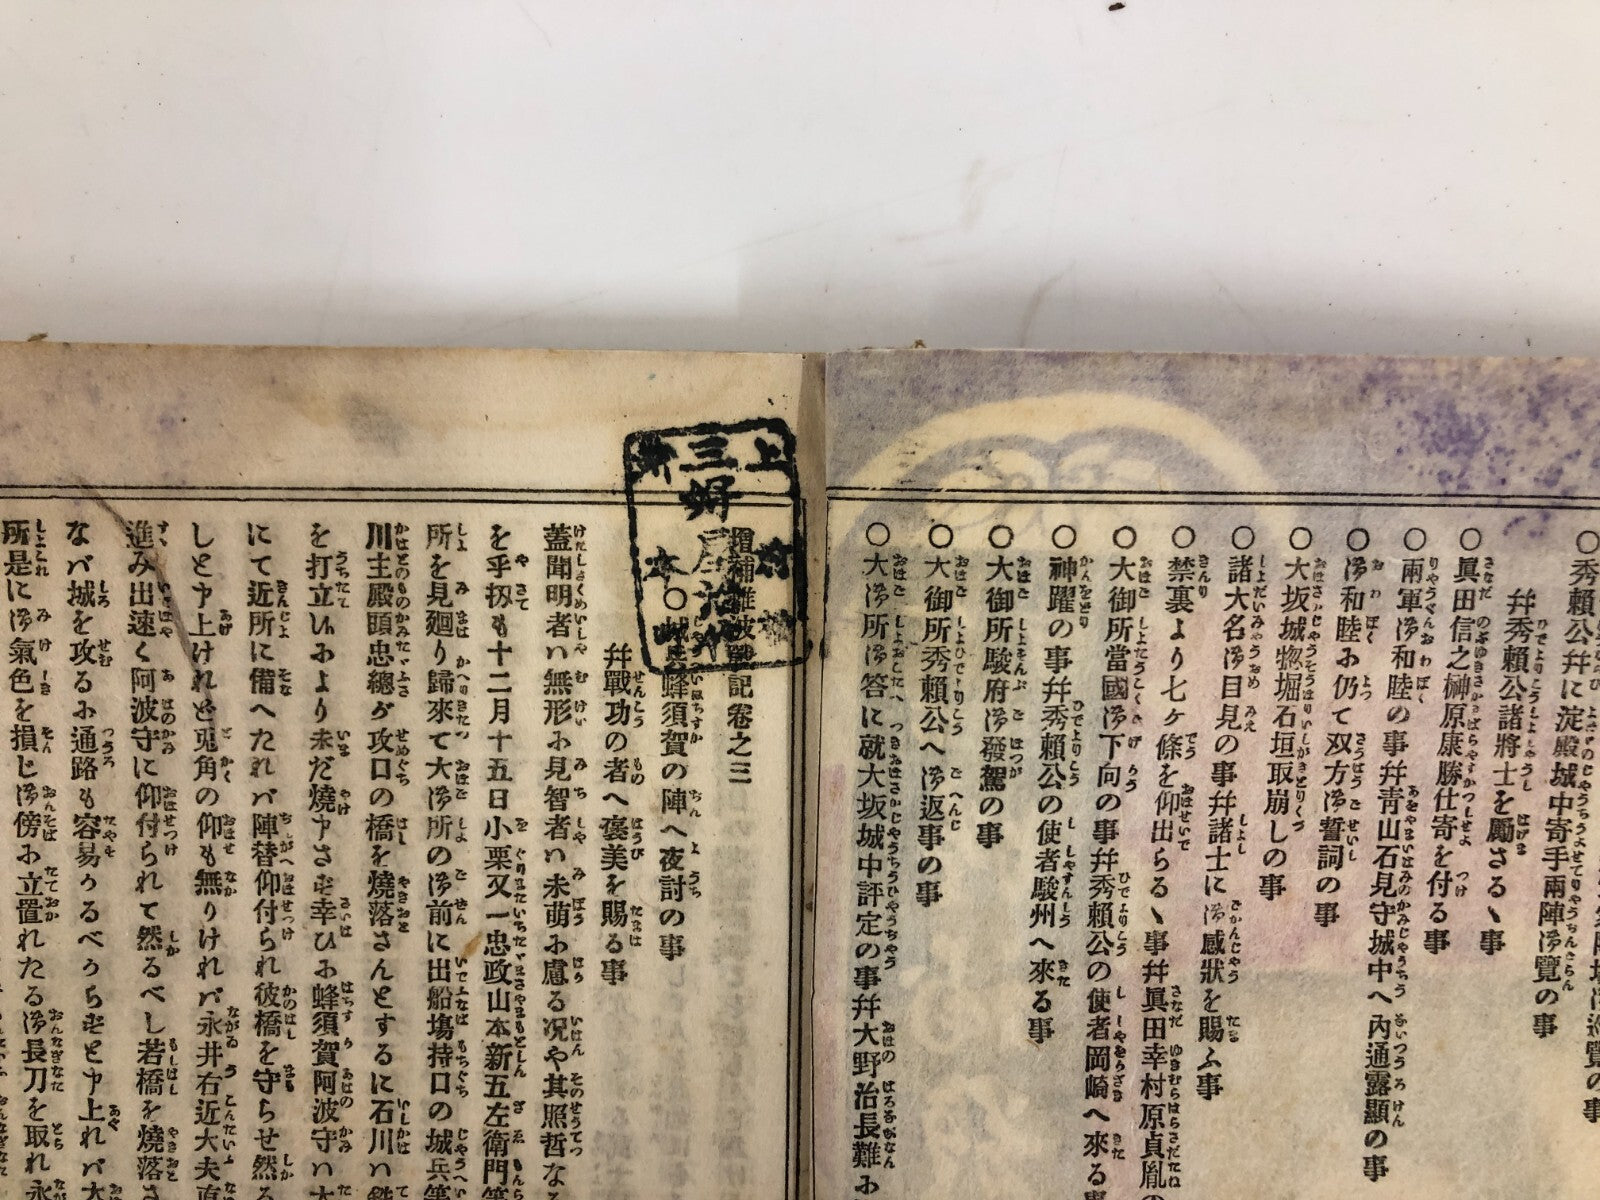 ○秀賴公幷に淀殿城中寄手兩陣御覽の事
幷秀賴公諸將士を勵さるゝ事
○眞田信之榊原康勝仕寄を付る事
○兩軍御和睦の事幷靑山石見守城中へ內通露顯の事
○御和睦に仍て双方御誓詞の事
○大坂城惣堀石垣取崩しの事
○諸大名御目見の事幷諸士に御感狀を賜ふ事
○禁裏より七ケ條を仰出らるゝ事幷眞田幸村原貞胤の
○大御所當國御下向の事幷秀賴公の使者岡崎へ來る事
○神躍の事幷秀賴公の使者駿州へ來る事
○大御所駿府御發駕の事
○大御所秀賴公へ御返事の事
○大御所御答に就大坂城中評定の事幷大野治長難に
增補難波戰記卷之三
○城兵蜂須賀の陣へ夜討の事
幷戰功の者へ褒美を賜る事
蓋聞明者ハ無形に見智者ハ未萌に慮る况や其照哲な
を乎扨も十二月十五日小栗又一忠政山本新五左衛門等
所を見廻り歸來て大御所の御前に出船塲持口の城兵等
川主殿頭忠總が攻口の橋を燒落さんとするに石川ハ鉄
を打立しにより未だ燒申さず幸ひに蜂須賀阿波守ハ大
にて近所に備へたれバ陣替仰付られ彼橋を守らせ然る
しと申上けれど兎角の仰も無りけれバ永井右近大夫直
進み出速く阿波守に仰付られて然るべし若橋を燒落さ
なバ城を攻るに通路も容易かるべからずと申上れバ大
所是に御氣色を損じ御傍に立置れたる御長刀を取れ永
三姉屋
本
上